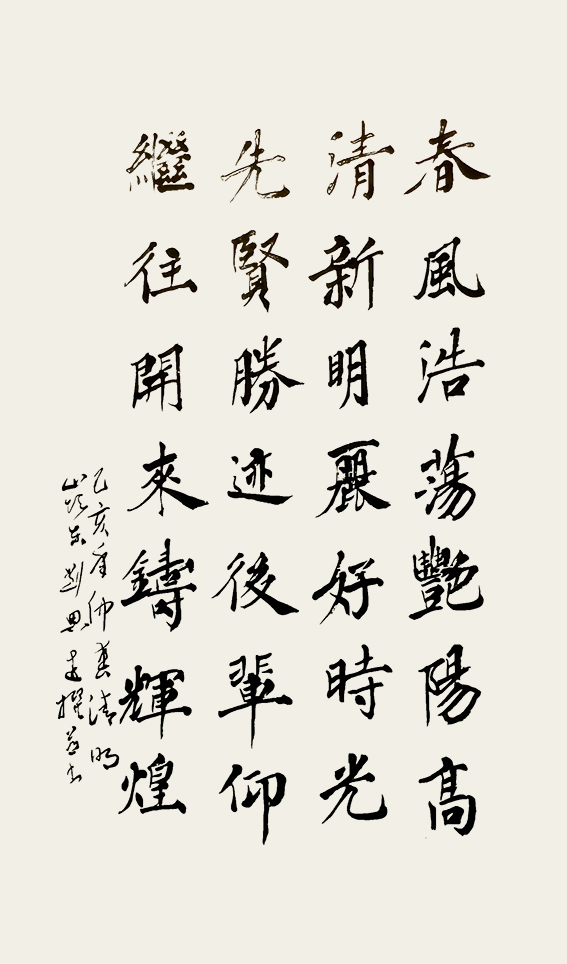 春風浩蕩豔陽高
清新明麗好時光
先賢勝迹後輩仰
繼往開來鑄輝煌
己亥年仲春清明
山東劉思撰并書